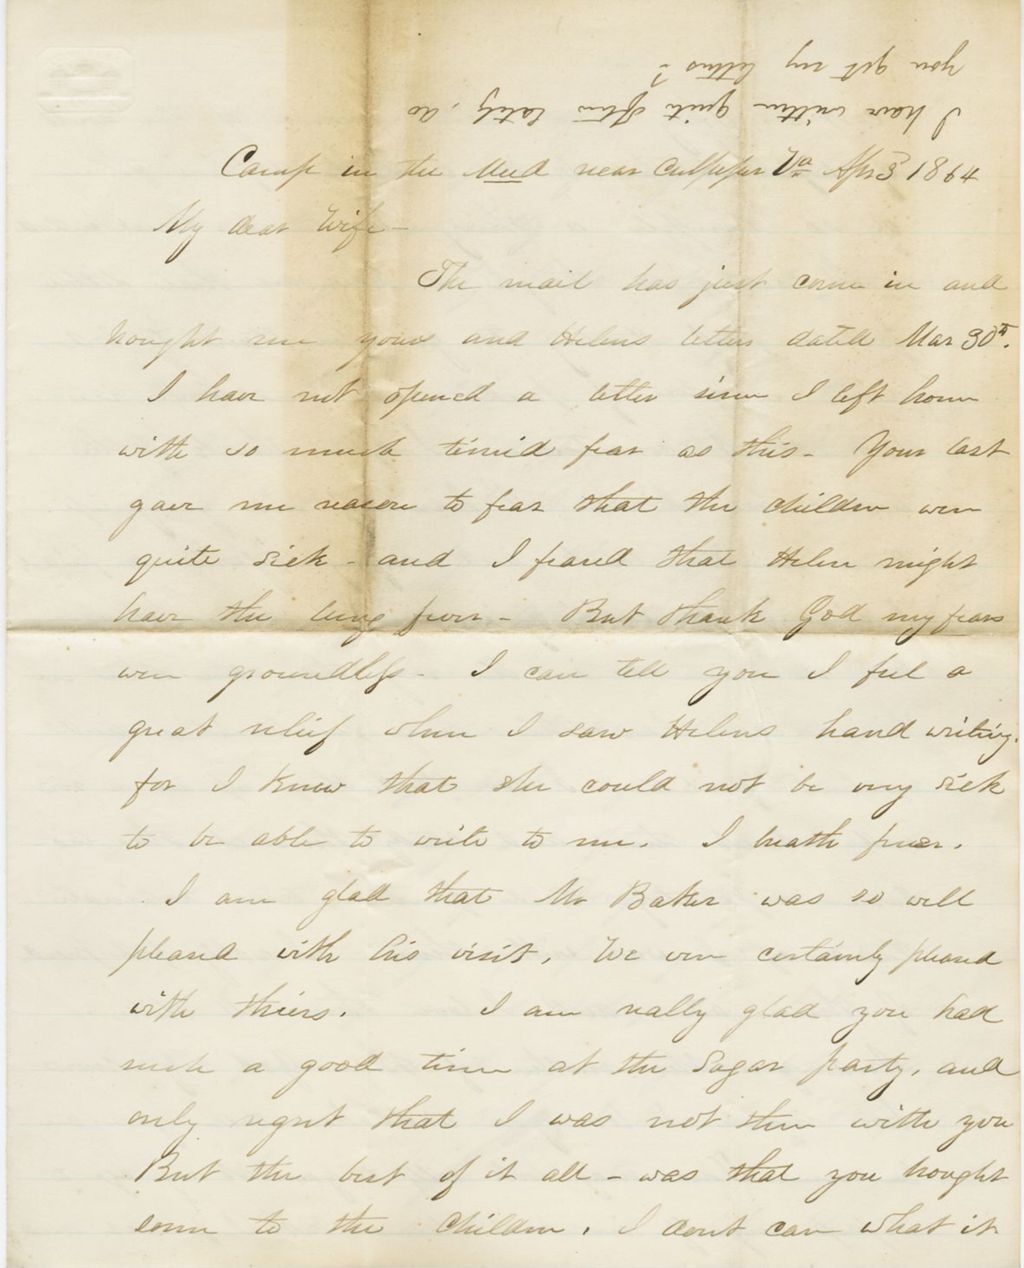 I have written quite often lately, do
you get my letters?
Camp in the Mud near Culpeper Va Apr 3 1864
My dear Wife -
The mail has just come in and
brought me yours and Helens letters dated Mar 30th.
I have not opened a letter since I left home
with so much timid fear as this - Your last
gave me reason to fear that the children were
quite sick - and I feared that Helen might
have the lung fever - But thank God my fears
were groundless - I can tell you I feel a
great relief when I saw Helens hand writing.
for I knew that she could not be very sick
to be able to write to me. I breath freer.
I am glad that Mr Baker was so well
pleased with his visit. We were certainly pleased
with thiers. I am really glad you had
such a good time at the Sugar party, and
only regret that I was not there with you
But the best of it all - was that you brought
some to the children. I dont care what it